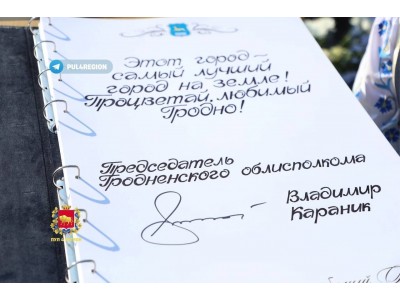 PUL4REGION
Этот город –
самый лучший
город на земле!
Процветай, любимый
Гродно!
Председатель
Гродненского облисполкома
Владимир
Караник